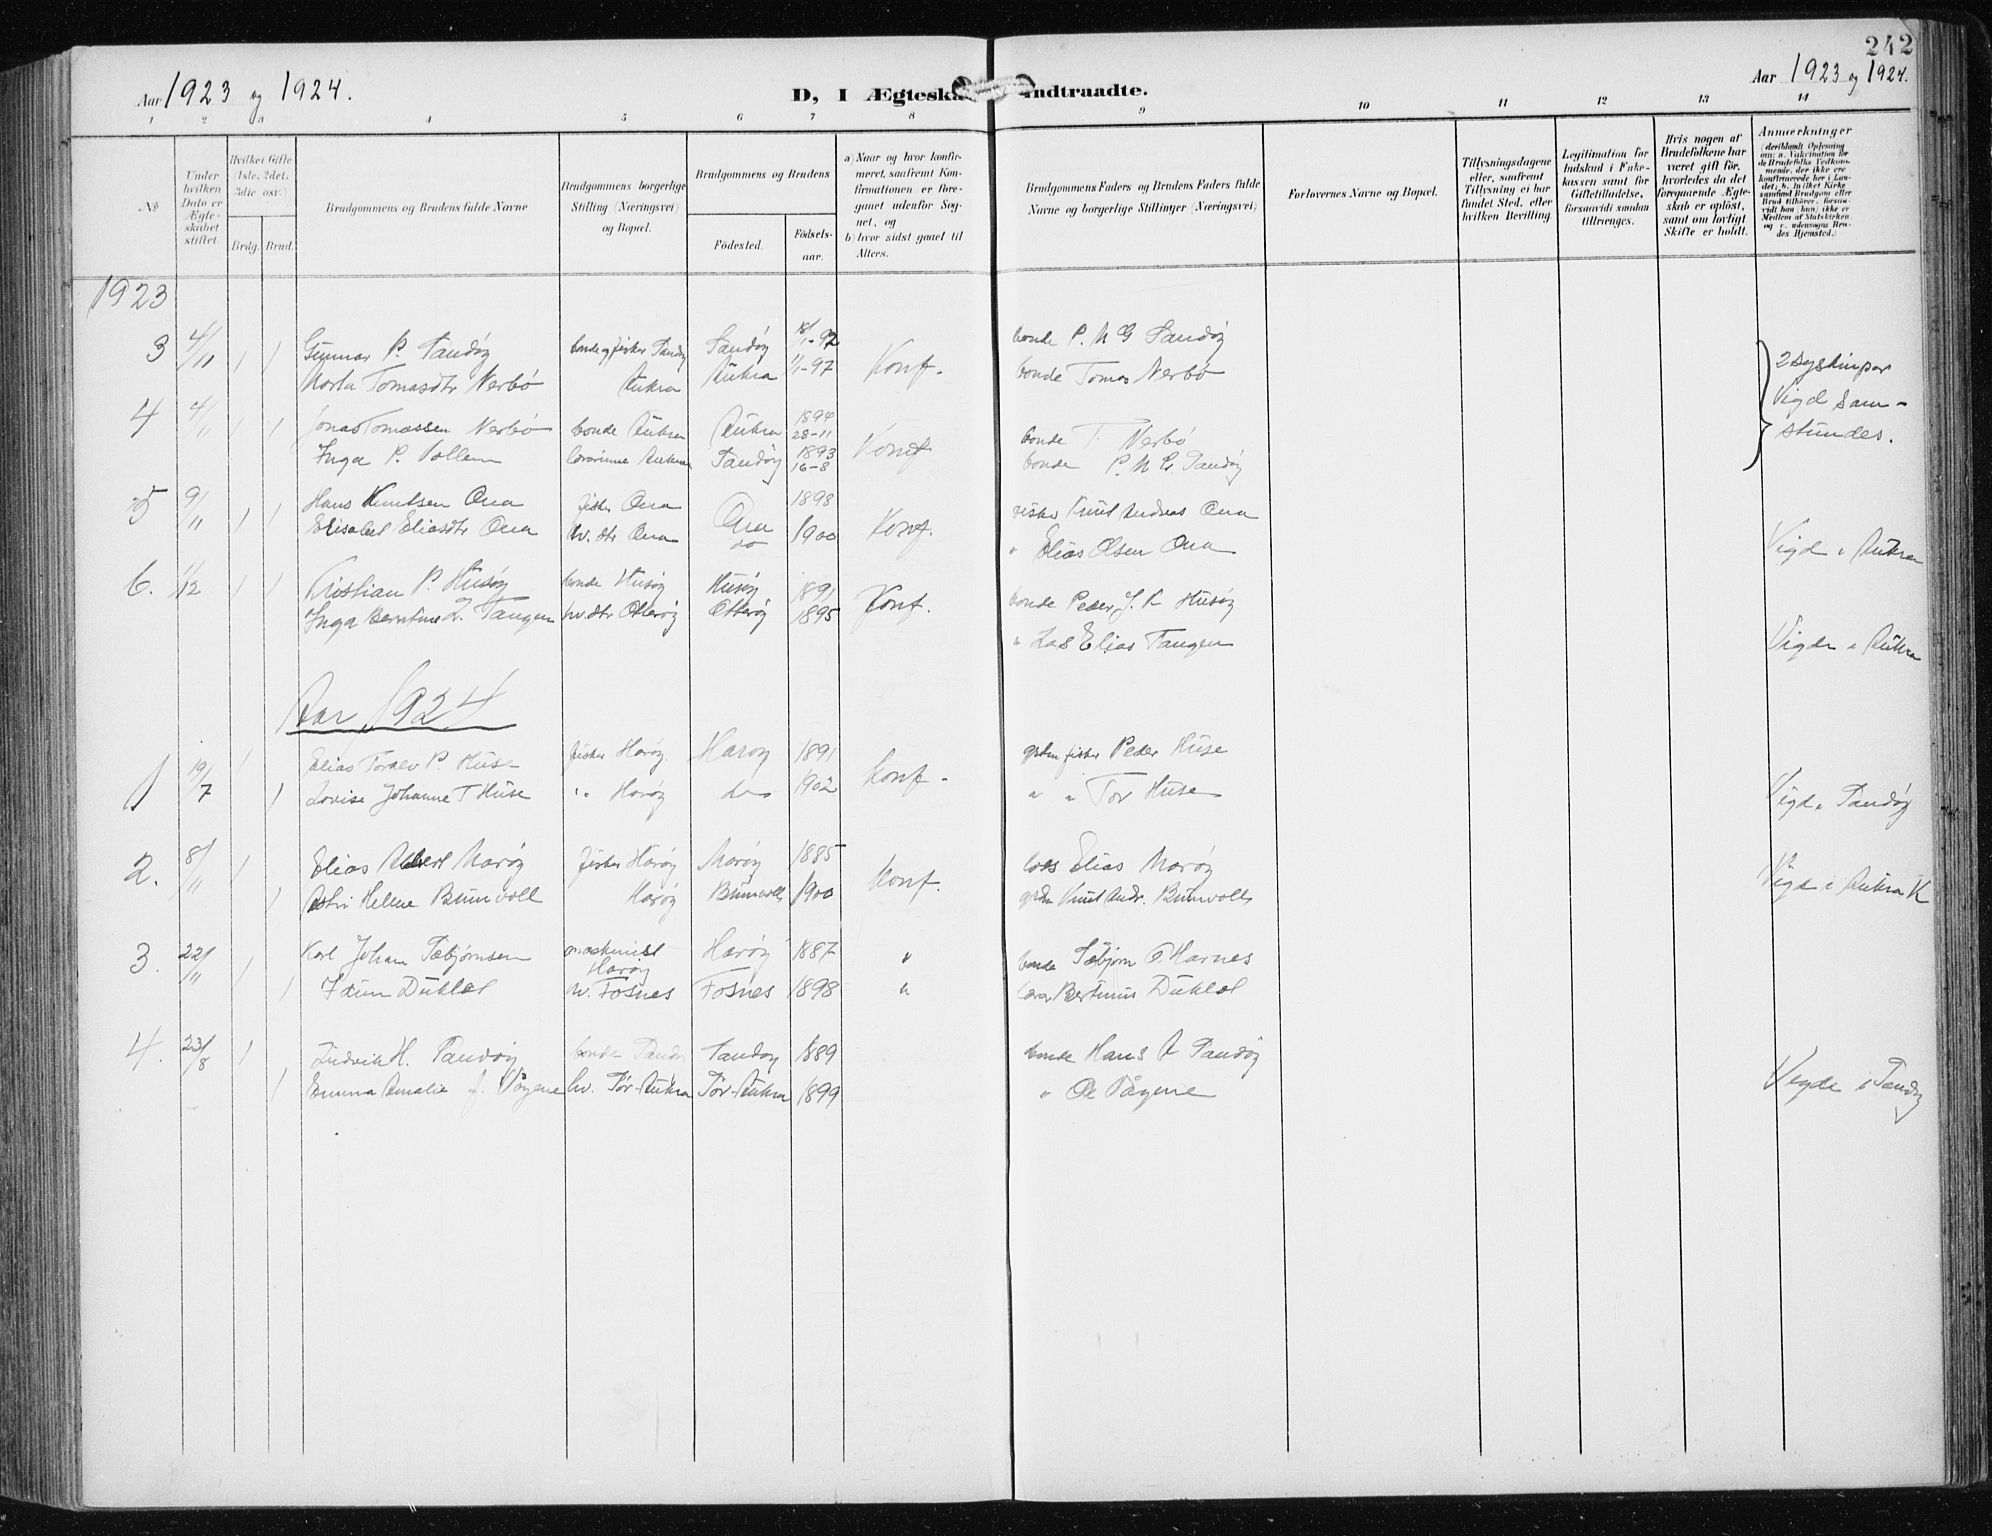 242
Aar 1923 og 1924.
D, I Ægteska Indtraadte.
Aar 1923 og 1924.
1 2 3 4 5 6 7 8 9 10 11 12 13 14
No
Under hvilken Dato er Ægteskabet stiftet.
Hvilket Gifte (1ste, 2det, 3die osv.)
Brdg. Brud.
Brudgommens og Brudens fulde Navne
Brudgommens borgerlige Stilling (Næringsvei) og Bopæl.
Brudgommens og Brudens
Fødested.
Fødselsaar.
a) Naar og hvor konfirmeret, saafremt Konfirmationen er foregaaet udenfor Sognet, og
b) hvor sidst gaaet til Alters.
Brudgommens Faders og Brudens Faders fulde Navne og borgerlige Stillinger (Næringsvei)
Forlovernes Navne og Bopæl.
Tillysningsdagene eller, saafremt Tillysning ei har fundet Sted, efter hvilken Bevilling.
Legitimation for Indskud i Enkekassen samt for Giftetilladelse, forsaavidt saadan tiltrænges.
Hvis nogen af Brudefolkene har været gift før, hvorledes da det foregaaende Ægteskab er opløst, samt om lovligt Skifte er holdt.
Anmærkninger
1923
3 4/11 1 1 Gunnar P. Sandøy bonde og fisker Sandøy Sandøy bonde P. M G Sandøy
Marta Tomasdtr Nerbø Aukra Aukra 1/1-97 Konf. bonde Tomas Nerbø
2 Syskinpar
Vigd sam-
stundes.
4 4/11 1 1 Jonas Tomassen Nerbø bonde Aukra Aukra 1894 28-11 Konf bonde T. Nerbø
Inga P. lærarinne Aukra Sandøy 1893 16-8 bonde P. M G. Sandøy
5 9/11 1 1 Hans Knutsen Ona fisker Ona Ona 1898 Konf. fisker Knut Andreas Ona
Elisabet Eliasdtr Ona h. dtr Ona do 1900 " Elias Olsen Ona Vigd i Aukra
6. 1/12 1 1 Kristian P. Husøy bonde Husøy Husøy 1891 Konf. bonde Peder J. P Husøy
Inga Berntine L. Tangen h. dtr Otterøy Otterøy 1895 " Las Elias Tangen Vigde i Aukra
Aar 1924
1 19/7 1 Elias Toralv P. Huse fisker Harøy Harøy 1891 konf. grdm fisker Peder Huse
1 Lovise Johanne T Huse " Harøy do 1902 " " Tor Huse Vigd i Sandøy
2. 8/11 1 Elias Albert Harøy fisker Harøy Harøy 1885 konf. Elias Harøy
1 Astri Helene Brunvoll Harøy Brunvoll 1900 grdm Knut Andr. Brunvoll Vigd i Aukra K
3. 22/11 1 Karl Johan Sæbjørnsen maskinist Harøy Harøy 1887 " bonde Sæbjørn P. Harnes
1 Idun Duklæt h. Fosnes Fosnes 1898 " lærer Bertinus Duklæt
4. 23/8 1 Ludvik H. Sandøy bonde Sandøy Sandøy 1889 bonde Hans A Sandøy
1 Emma Amalie f. Vågene h. Sør-Aukra Sør-Aukra 1899 " Ole Vågene Vigde i Sandøy